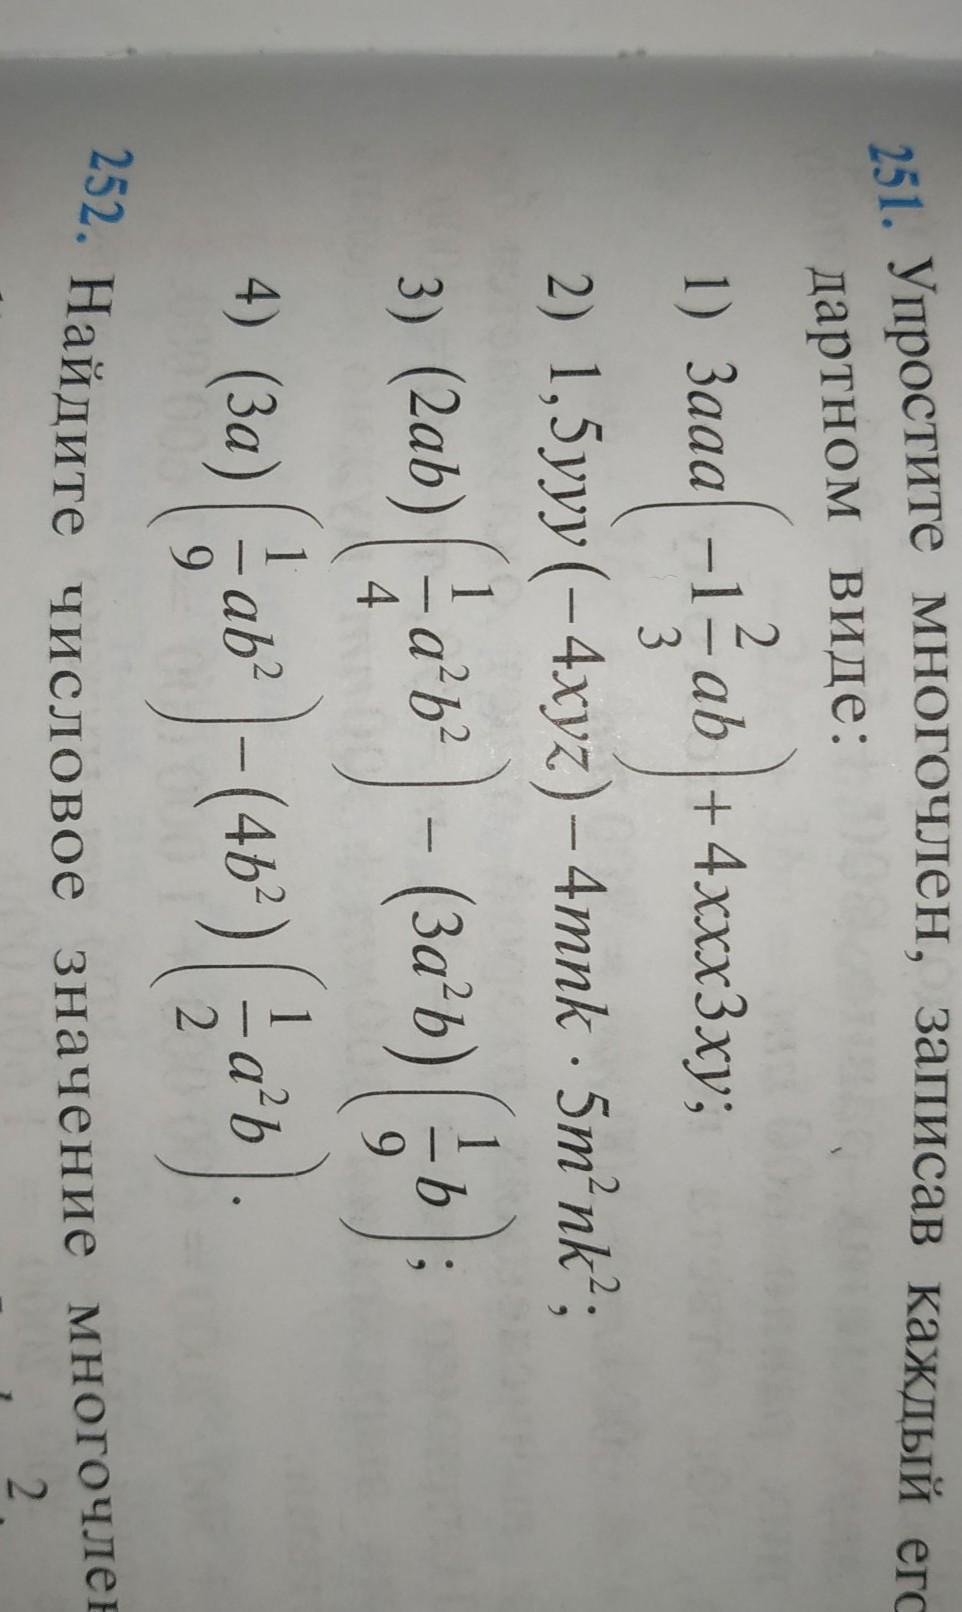 251. Упростите многочлен, записав каждый его
дартном виде:
1) 3aaa(-1 2/3 ab) + 4xxx3xy;
2) 1,5yyy(-4xyz) - 4mnk · 5m²nk²;
3) (2ab)(1/4 a²b²) - (3a²b)(1/9 b);
4) (3a)(1/9 ab²) - (4b²)(1/2 a²b).
252. Найдите числовое значение многочлен